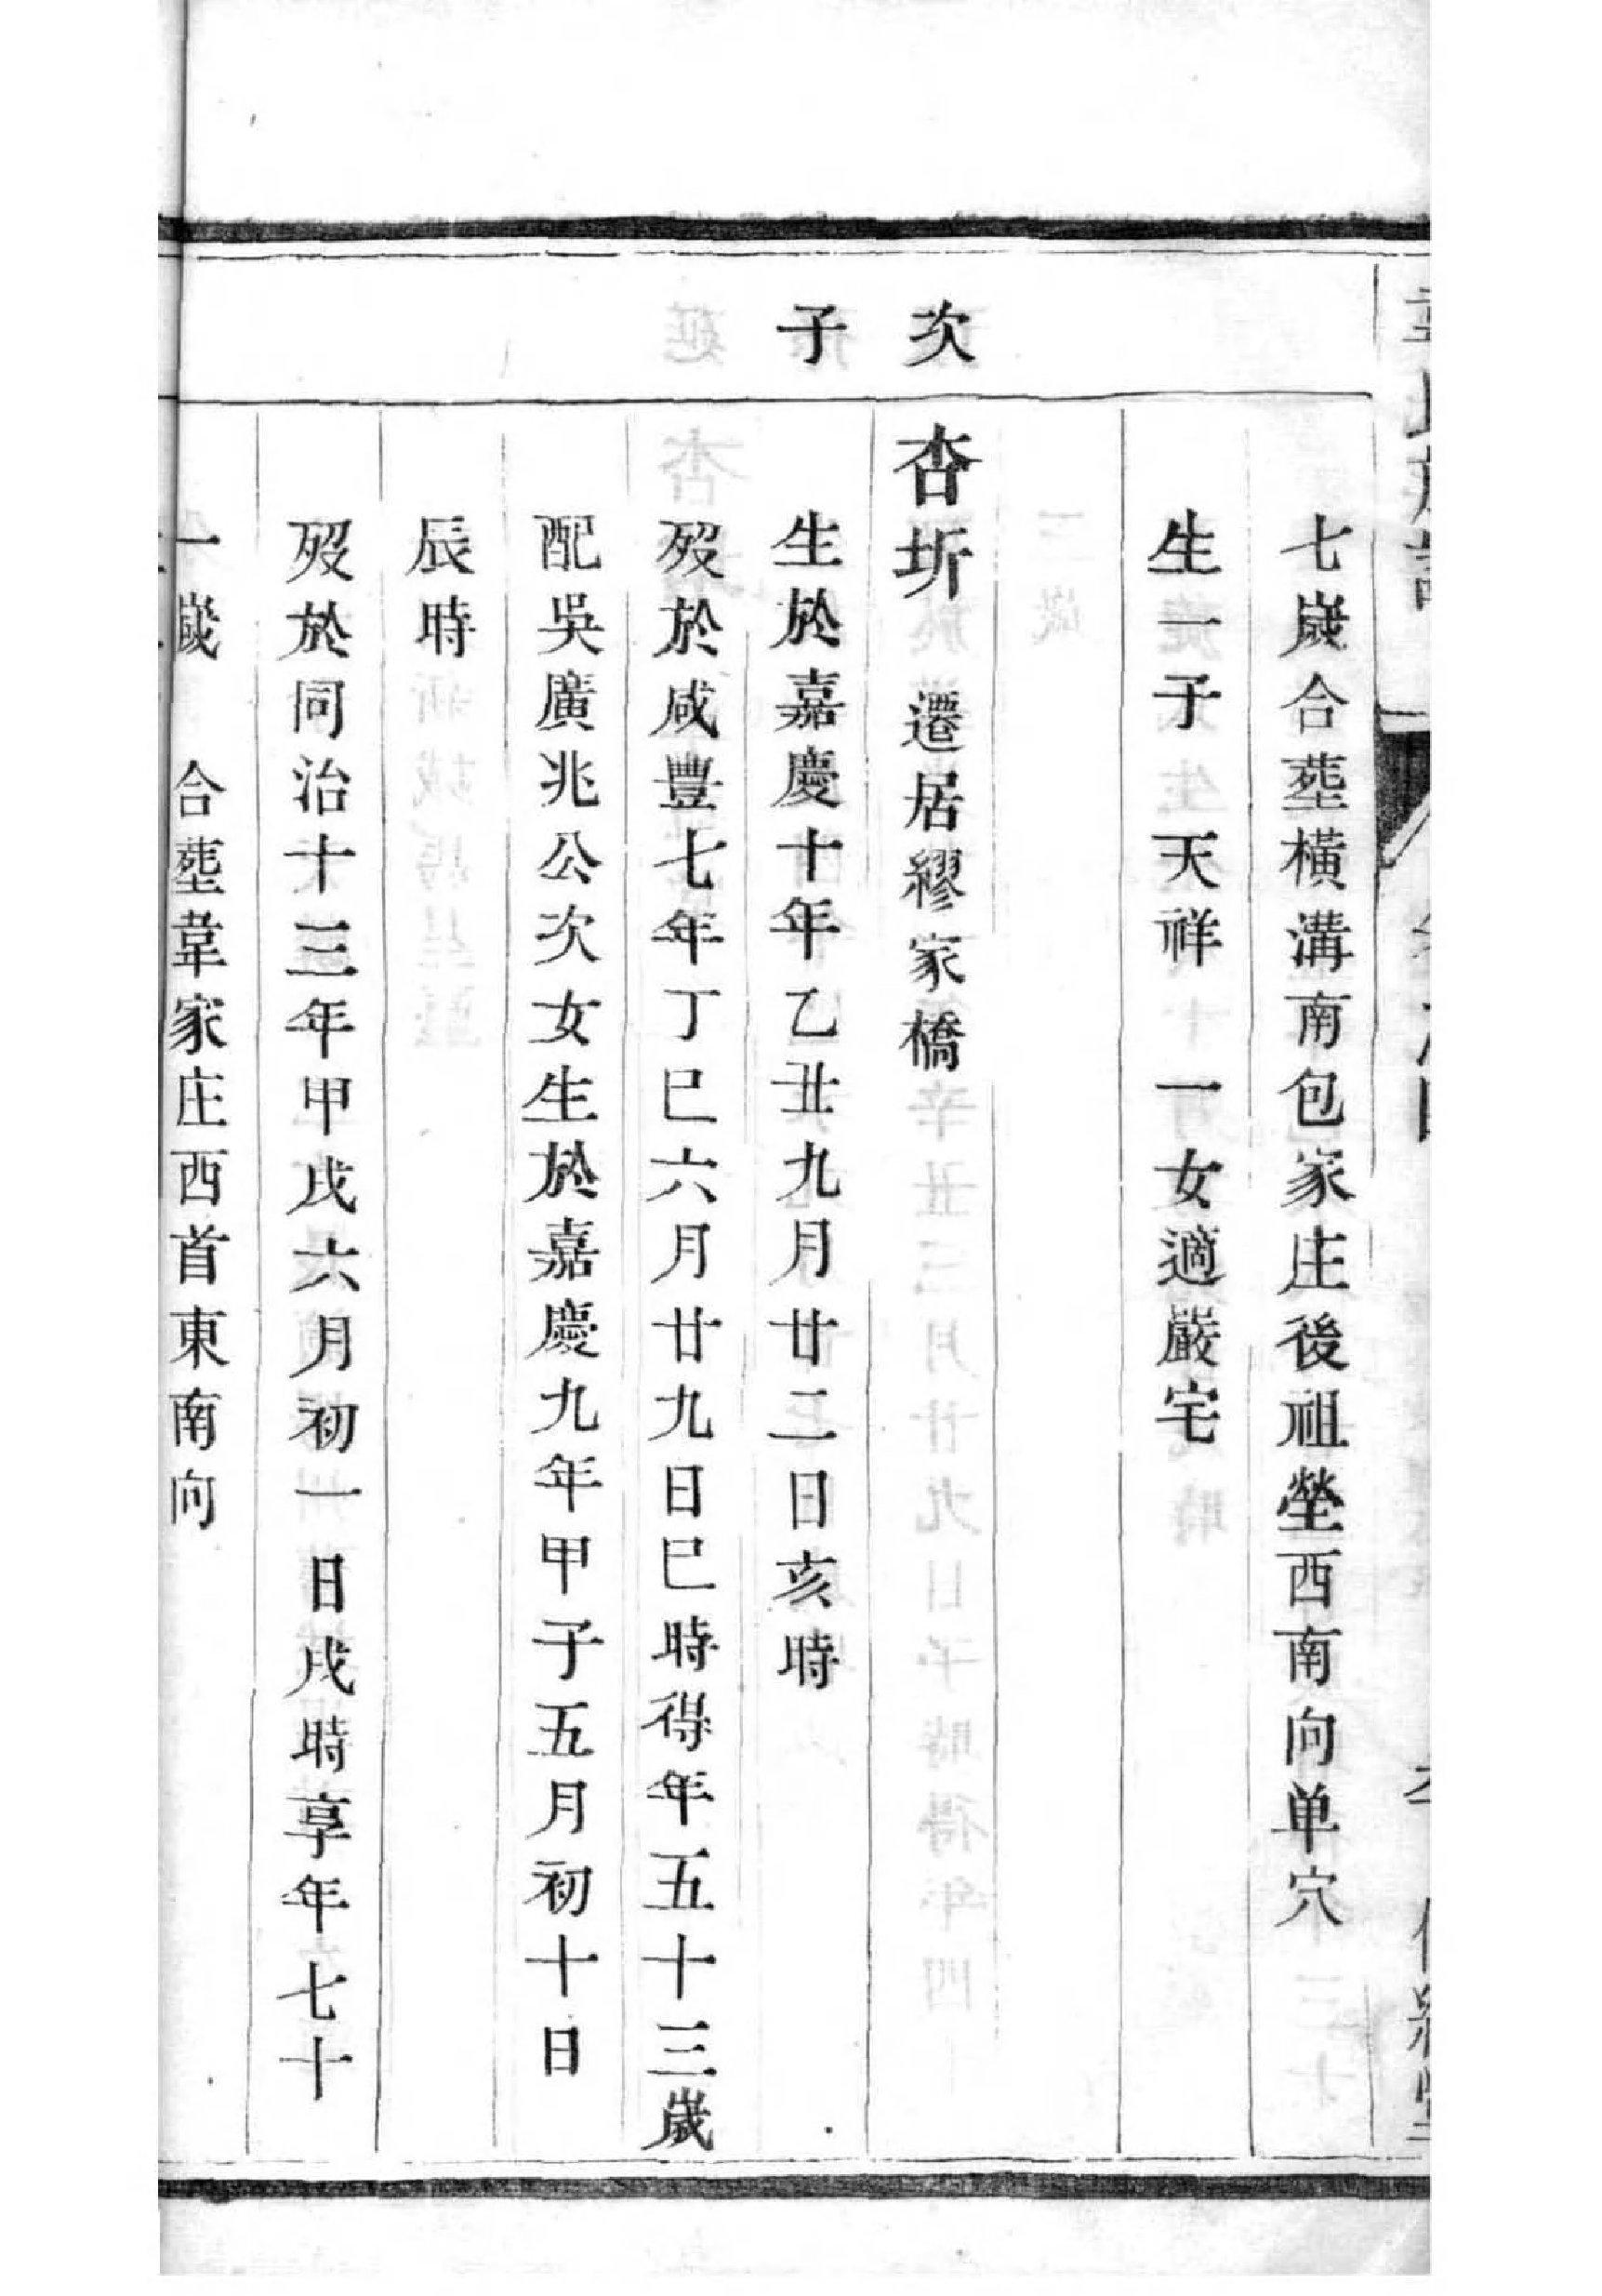 七歲合塟橫溝南包家庄後祖塋西南向单穴
生一子天祥 一女適嚴宅
次子
杏圻 遷居繆家橋
生於嘉慶十年乙丑九月廿二日亥時
歿於咸豐七年丁巳六月廿九日巳時得年五十三歲
配吳廣兆公次女生於嘉慶九年甲子五月初十日
辰時
歿於同治十三年甲戌六月初一日戌時享年七十
一歲 合塟韋家庄西首東南向